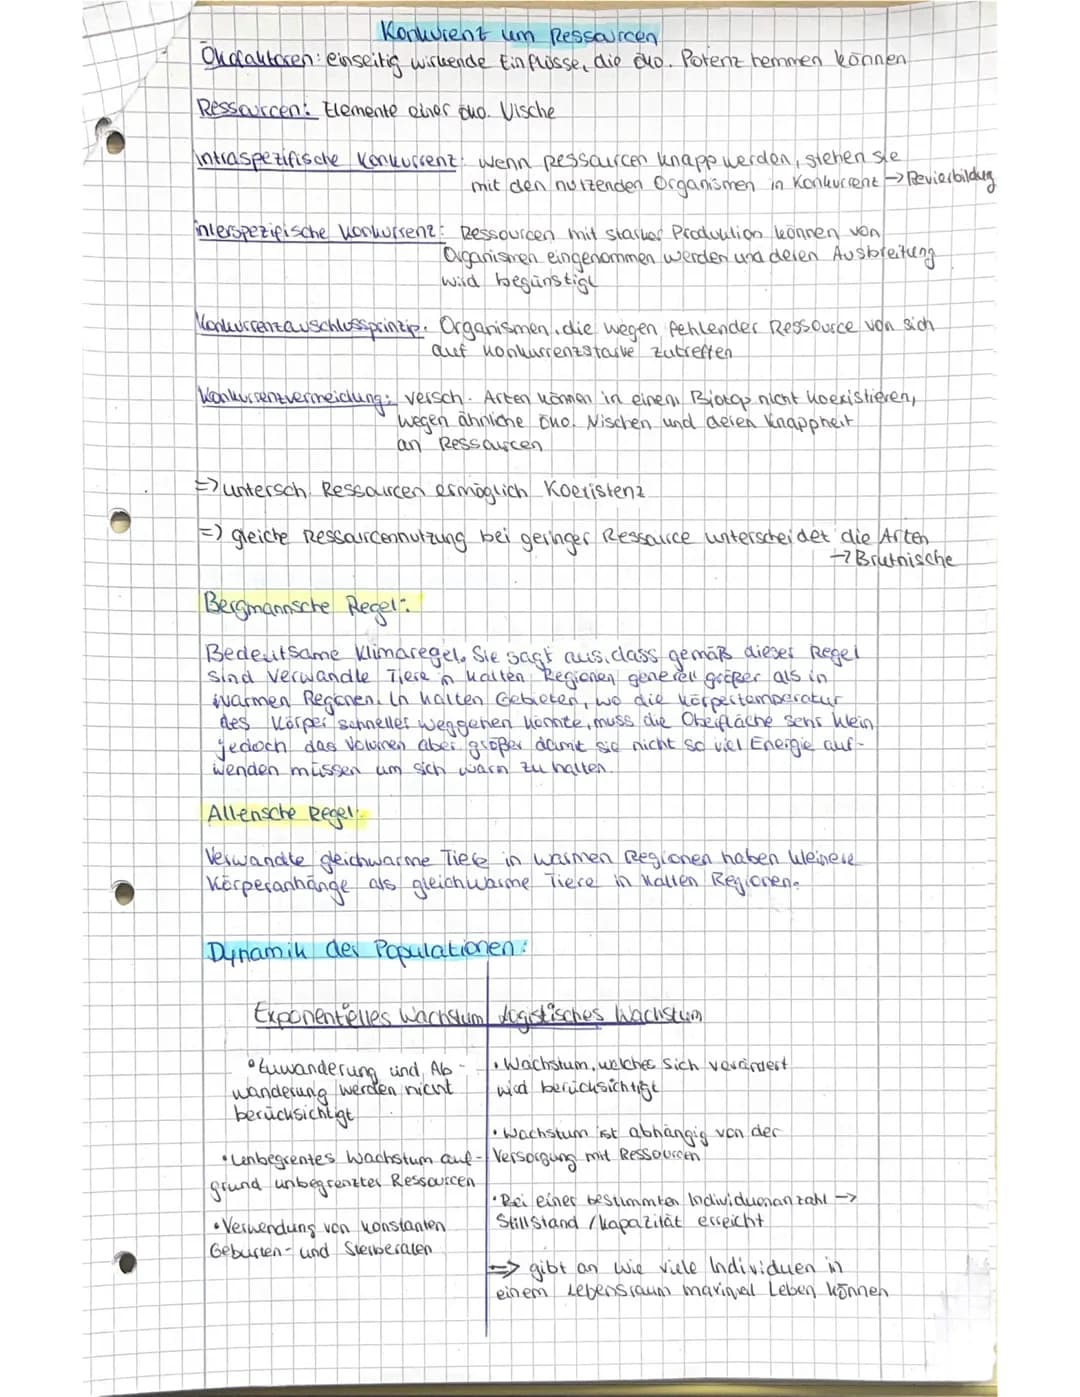 Konkurrent um Ressourcen
Ökofaktoren: einseitig wirkende Einflüsse, die öko. Potenz hemmen können
Ressourcen: Elemente einer öko. Nische
Intraspezifische Konkurrenz: wenn Ressourcen knapp werden, stehen sie
mit den nutzenden Organismen in Konkurrent → Revierbildug
interspezifische Konkurrenz: Ressourcen mit starker Produktion können von
Organismen eingenommen werden und deren Ausbreitung
wird begünstigt
Konkurrenzauschlussprinzip: Organismen, die wegen fehlender Ressource von sich
auf konkurrenzstarke zutreffen
Konkurrenzvermeidung: versch. Arten können in einem Biotop nicht koexistieren,
wegen ähnliche öko. Nischen und deren Knappheit
an Ressourcen
=> untersch. Ressourcen ermöglich Koexistenz
=> gleiche Ressourcennutzung bei geringer Ressource unterscheidet die Arten
→ Brutnische
Bergmannsche Regel:
Bedeutsame Klimaregel. Sie sagt aus, dass gemäß dieser Regel
sind verwandte Tiere in kalten Regionen generell größer als in
warmen Regionen. In kalten Gebieten, wo die Körpertemperatur
des Körper schneller weggehen könnte, muss die Oberfläche sehr klein,
jedoch das Volumen aber größer damit sie nicht so viel Energie auf-
wenden müssen um sich warm zu halten.
Allensche Regel:
Verwandte gleichwarme Tiere in warmen Regionen haben kleinere
Körperanhänge als gleichwarme Tiere in kalten Regionen.
Dynamik der Populationen:
Exponentielles Wachstum
• Zuwanderung und Ab-
wanderung werden nicht
berücksichtigt
• Unbegrentes Wachstum auf-
grund unbegrenzter Ressourcen
• Verwendung von konstanten
Geburten- und Sterberaten
logistisches Wachstum
• Wachstum, welches sich verändert
wird berücksichtigt
• Wachstum ist abhängig von der
Versorgung mit Ressourcen
• Bei einer bestimmten Individuenanzahl →
Stillstand / kapazität erreicht
=> gibt an wie viele Individuen in
einem Lebensraum maximal Leben können